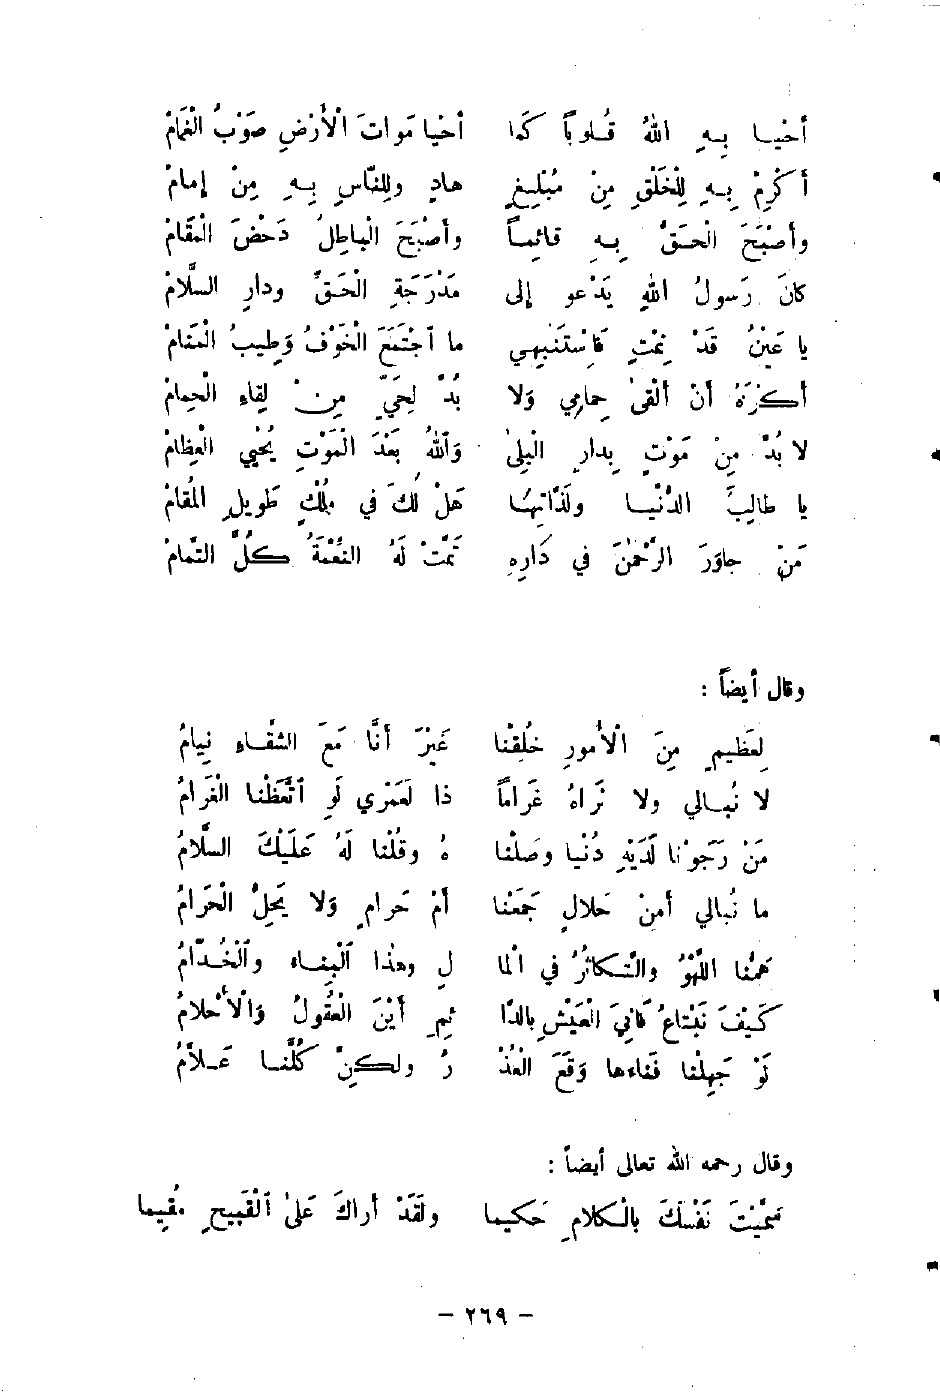 أَحْيَا بِهِ اللهُ قُلُوبًا كَمَا أَحْيا مَواتَ الْأَرْضِ صَوْبُ الْغَمَامْ
أَكْرِمْ بِهِ لِلْخَلْقِ مِنْ مُبْلِغٍ هادٍ ولِلنَّاسِ بِهِ مِنْ إِمامْ
وأَصْبَحَ الْحَقُّ بِهِ قائِماً وأَصْبَحَ الْباطِلُ دَحْضَ الْمَقَامْ
كانَ رَسولُ اللهِ يَدْعو إلى مَدْرَجَةِ الْحَقِّ ودارِ السَّلَامْ
يا عَيْنُ قَدْ نِمْتِ فَاسْتَنْبِهي ما اجْتَمَعَ الْخَوْفُ وَطِيبُ الْمَنَامْ
أَكْرَهُ أَنْ أَلْقىٰ حِمامِي وَلا بُدَّ لِحَيٍّ مِنْ لِقَاءِ الْحِمامْ
لا بُدَّ مِنْ مَوْتٍ بِدارِ الْبِلىٰ وَاللهُ بَعْدَ الْمَوْتِ يُحْيِي الْعِظَامْ
يا طالِبَ الدُّنْيا ولَذَّاتِهَا هَلْ لَكَ في مُلْكٍ طَويلِ المُقامْ
مَنْ جاوَرَ الرَّحْمٰنَ في دَارِهِ تَمَّتْ لَهُ النِّعْمَةُ كُلَّ التَّمامْ
وقال أيضاً :
لِعَظِيمٍ مِنَ الْأُمورِ خُلِقْنا غَيْرَ أَنَّا مَعَ الشَّقَاءِ نِيامُ
لا نُبالي ولا نَراهُ غَراماً ذا لَعَمْري لَوِ اتَّعَظْنا الْغَرَامُ
مَنْ رَجَوْنا لَدَيْهِ دُنْيا وَصَلْنا هُ وقُلْنا لَهُ عَلَيْكَ السَّلَامُ
ما نُبالي أَمِنْ حَلالٍ جَمَعْنا أَمْ حَرامٍ وَلا يَحِلُّ الْحَرامُ
هَمُّنا اللَّهْوُ والتَّكاثُرُ في الْما لِ وهٰذا الْبِناءُ والْخُدَّامُ
كَيْفَ نَبْتاعُ فانِيَ الْعَيْشِ بِالدَّا ئِمِ أَيْنَ الْعُقُولُ وَالْأَحْلامُ
لَوْ جَهِلْنا فَناءها وَقَعَ الْعُذْ رُ ولكِنْ كُلُّنا عَلَّامُ
وقال رحمه الله تعالى أيضاً :
سَمَّيْتَ نَفْسَكَ بالْكلامِ حَكيما ولَقَدْ أَراكَ عَلىٰ الْقَبيحِ مُقِيما
– ٢٦٩ –